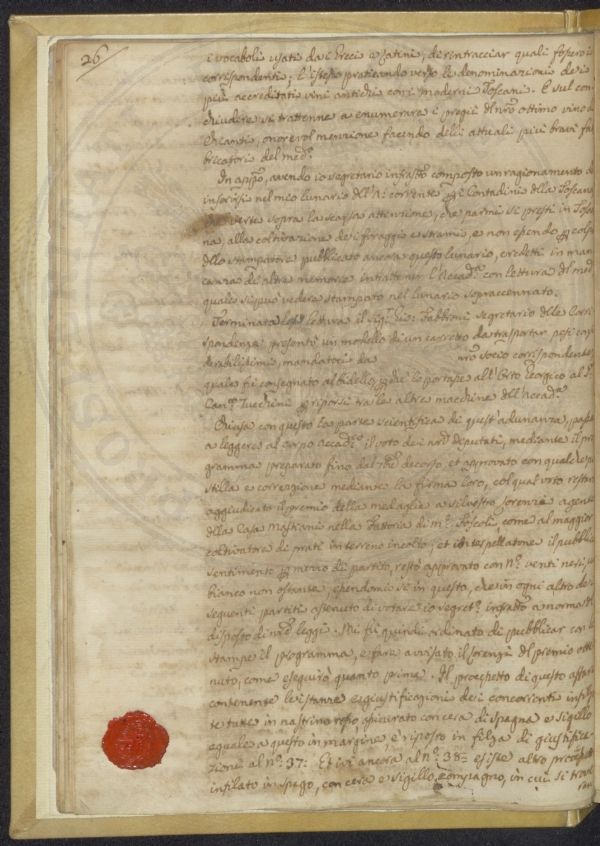 26
i vocaboli usati dai Greci e Latini, di rintracciar quali fossero i
corrispondenti; l'istesso praticando verso le denominazioni dei
più accreditati vini antichi con i moderni Toscani. E sul con
chiudere si trattenne a enumerare i pregi del nro ottimo vino di
Chianti, onorevol menzione facendo delli attuali più bravi fab
bricatori del med.º
In app.º, avendo io segretario infrasto composto un ragionamento da
inserirsi nel mio lunario dell'A: corrente pei Contadini della Toscana
che verte sopra la scarsa attenzione, che parmi si presti in Tosca
na, alla coltivazione dei foraggi e strami, e non essendo per colpa
dello stampatore pubblicato ancora questo lunario, credetti in man
canza di altre memorie intrattener l'Accad.ª con lettura del med.º
quale si può vedere stampato nel lunario sopraccennato.
Terminata la lettura il sig.r Gio: Fabbroni Segretario delle Corri
spondenze presentò un modello di un carretto da trasportar pesi con
siderabilissimi, mandatoci da nro socio corrispondente,
quale fu consegnato al Bidello, perchè lo portasse all'Orto Georgico al S.r
Can.co Zucchini per riporsi tra le altre macchine dell'Accad.ª
Chiusa con questo la parte scientifica di quest'adunanza, passai
a leggere al corpo Accad.º il voto dei nri Deputati, mediante il pro
gramma preparato fino dal decorso, et approvato con qualche po
stilla e correzione mediante la firma loro, col qual voto restava
aggiudicato il premio della medaglia a Silvestro Lorenzi agente
della Casa Mastiani nella Fattoria di Toscoli, come al maggior
coltivatore di prati in terreno incolto; et interpellatone il pubblico
sentimento per mezzo di partito, restò approvato con N.º venti neri, un
bianco non ostante, essendomi io in questo, che in ogni altro dei
seguenti partiti astenuto di votare io segret.º infrasto a norma del
disposto di nre leggi. Mi fu quindi ordinato di pubblicar con le
stampe il programma, e fare avvisato il Lorenzi del premio otte
nuto, come eseguirò quanto prima. Il pacchetto di questo affare
contenente le istanze e giustificazioni dei concorrenti infilza
te tutte in nastrino rosso, assicurato con cera di spagna e sigillo
eguale a questo in margine, è riposto in filza di giustifica
zione al n.º 37: Et ivi ancora al n.º 38: esiste altro pacchetto
infilato in spago, con cera e sigillo compagno, in cui si trova